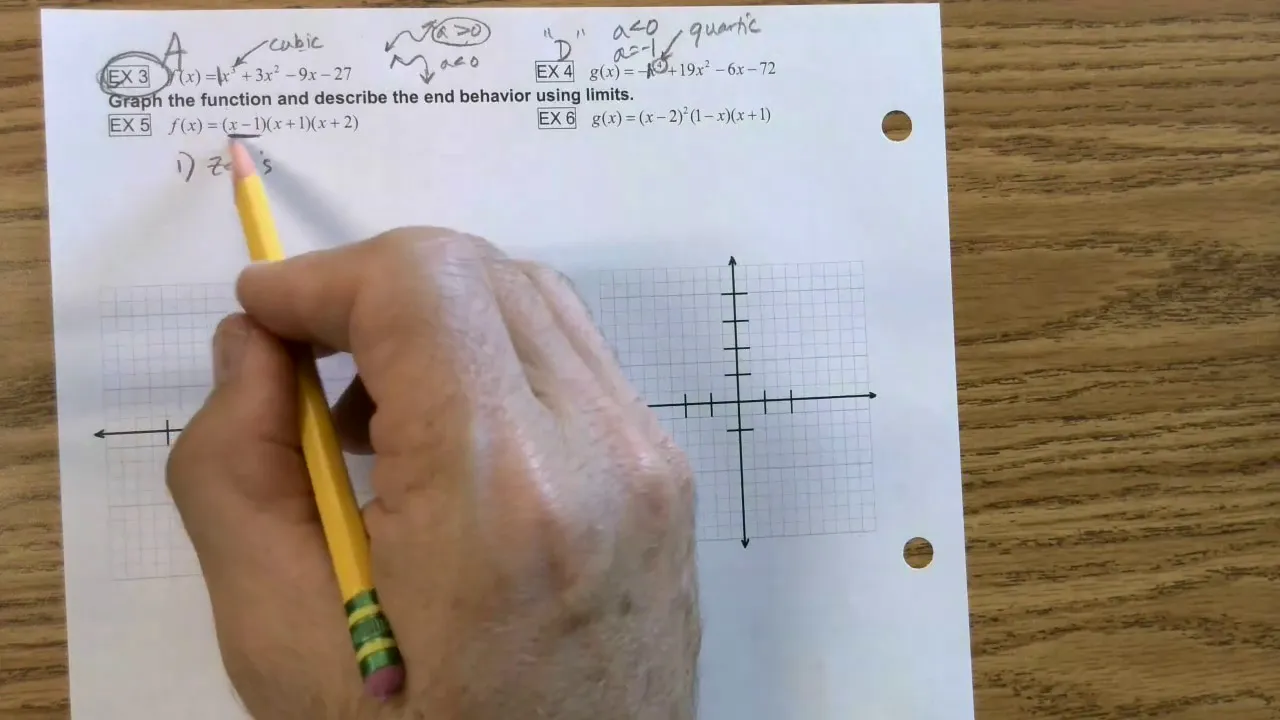 A cubic a>0 a<0 "D" a<0 a=-1 quartic
EX 3 f(x) = 1x³ + 3x² − 9x − 27 EX 4 g(x) = −1x⁴ + 19x² − 6x − 72
Graph the function and describe the end behavior using limits.
EX 5 f(x) = (x − 1)(x + 1)(x + 2) EX 6 g(x) = (x − 2)²(1 − x)(x + 1)
1)